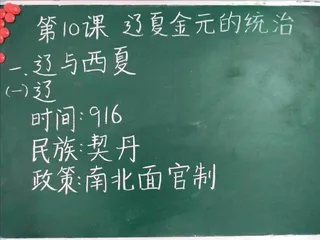 第10课 辽夏金元的统治
一、辽与西夏
(一)辽
时间:916
民族:契丹
政策:南北面官制